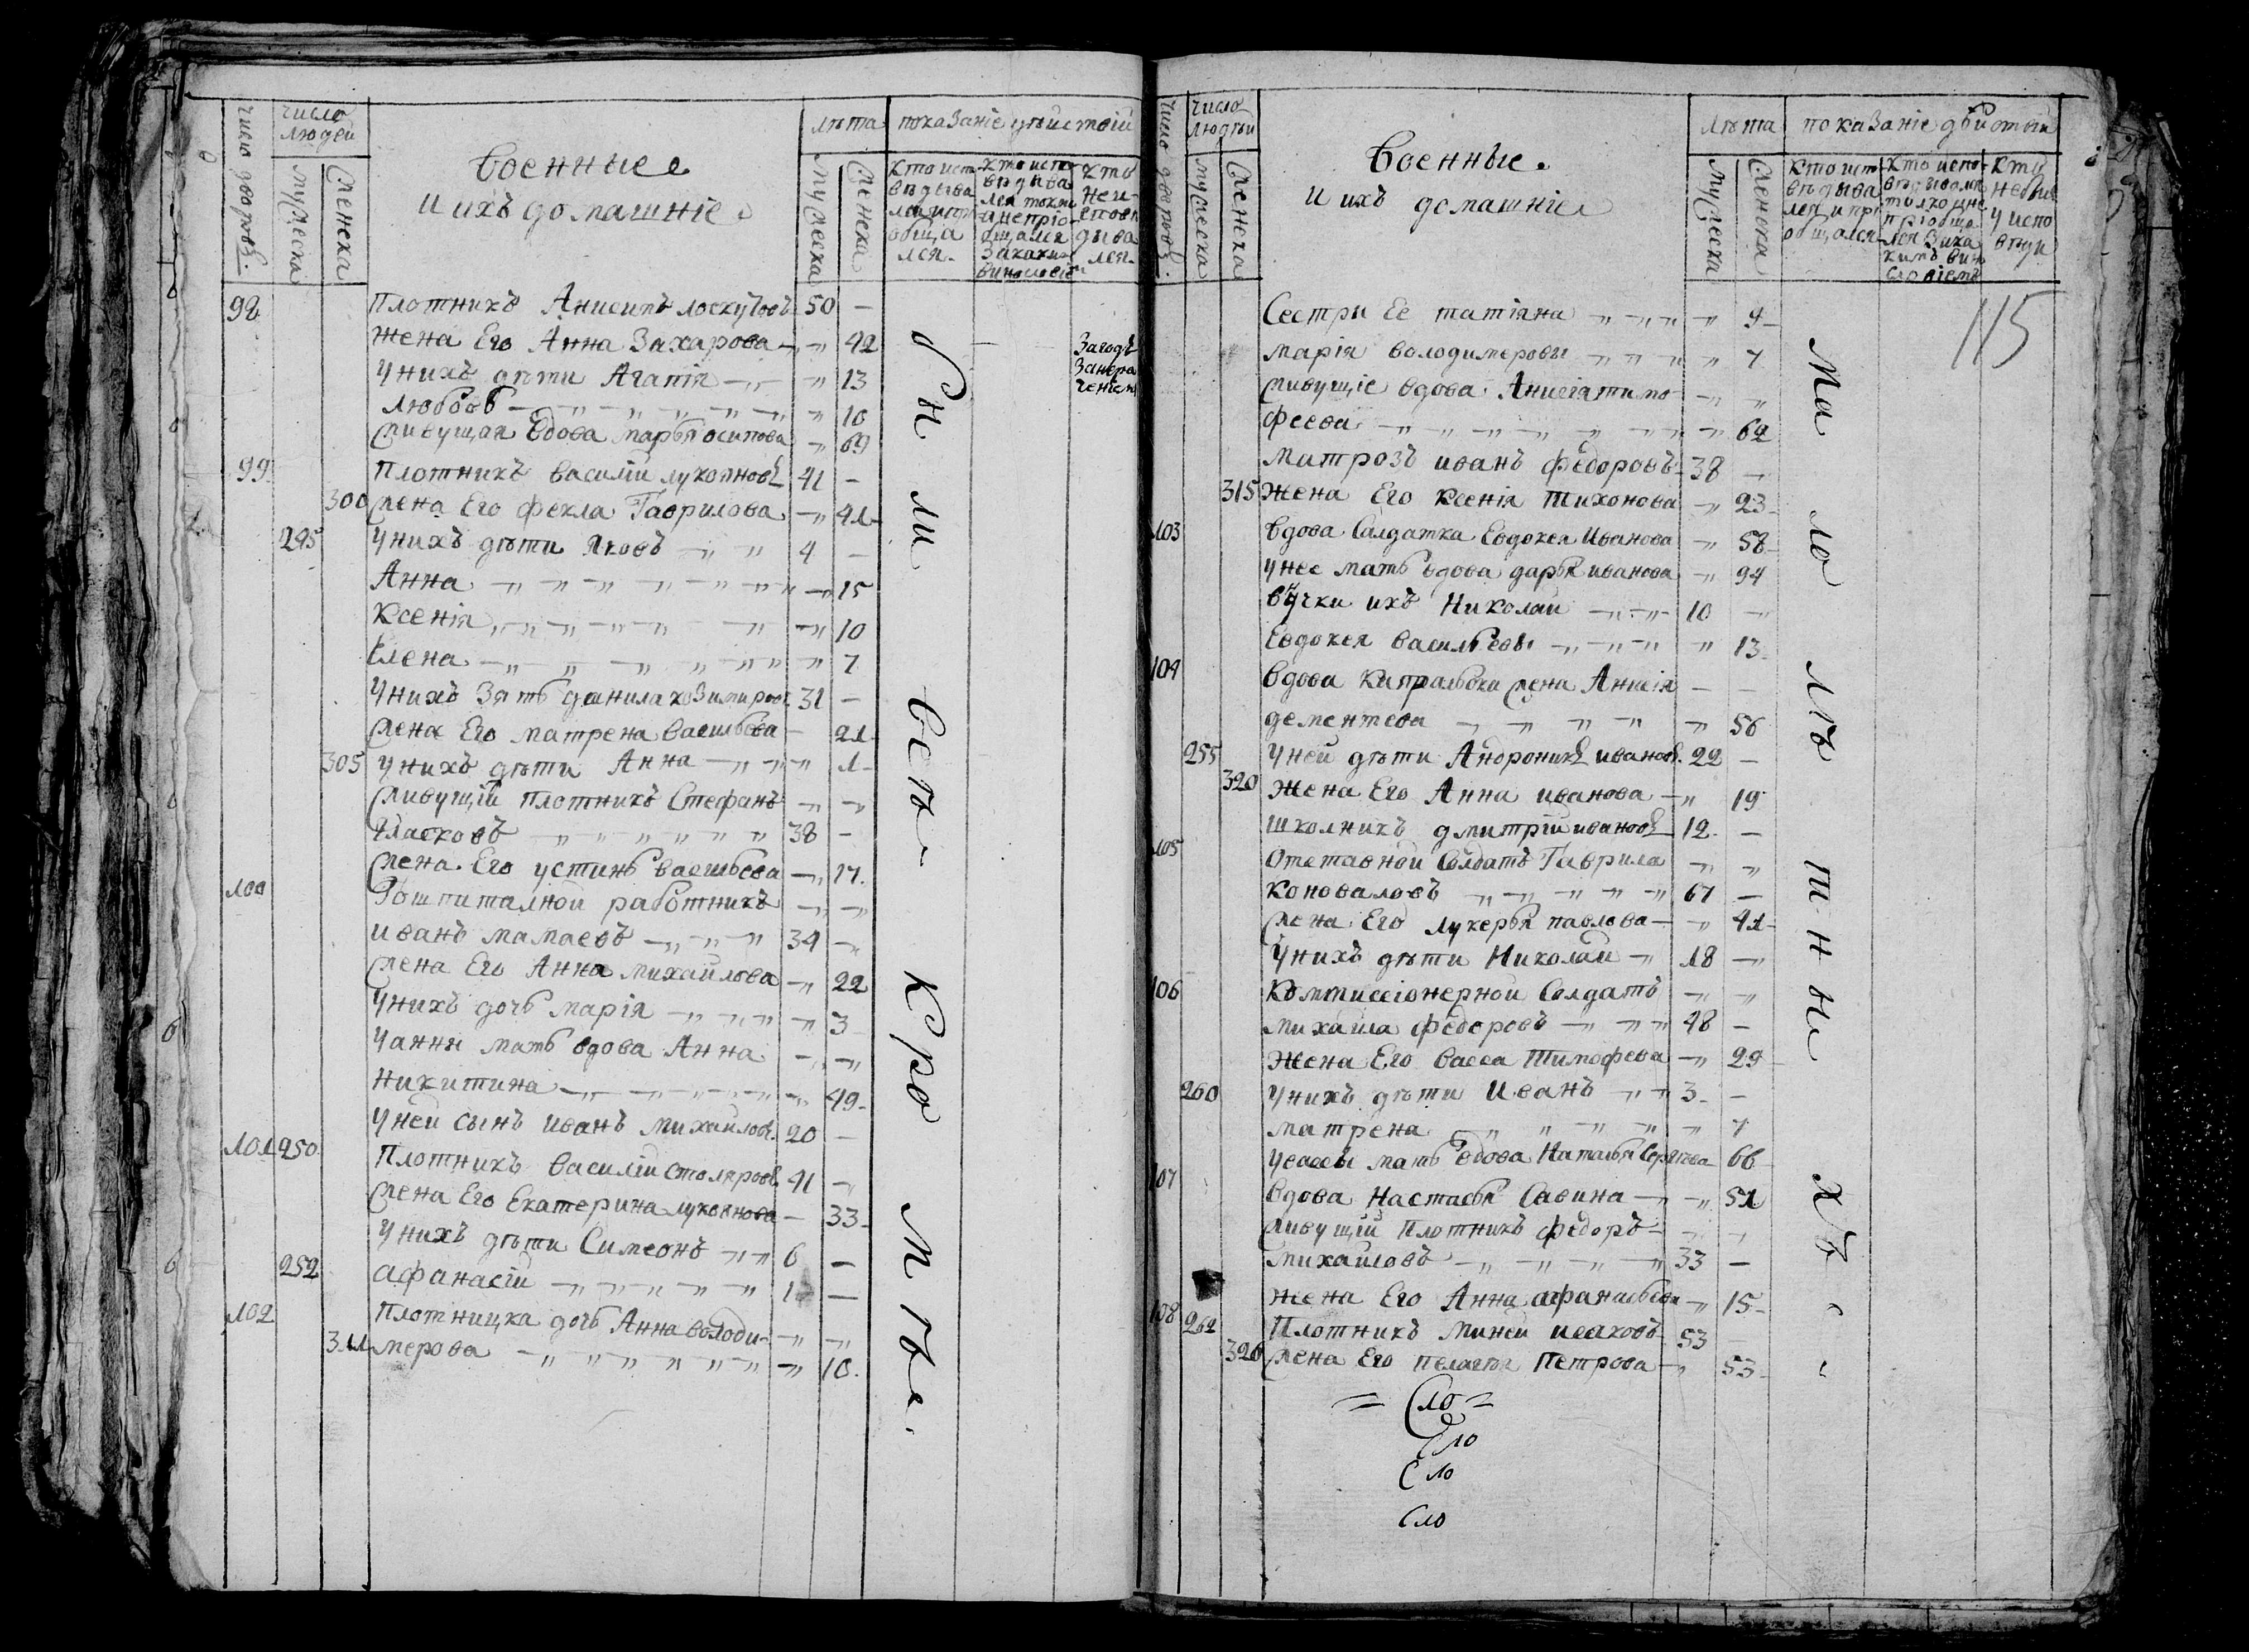 число дворовъ.
число
людей
мужеска
женска
военные
и ихъ домашніе
лѣта
мужеска
женска
показаніе дѣйствій
кто испо
вѣдыва
лся и прі
обща
лся
кто испо
вѣдыва
лся токмо
а не пріо-
бщался
за каким
винословіем
кто
не и-
сповѣ
дыва
лся
98 плотникъ Анисимъ лоскутовъ 50 —
жена Его Анна Захарова 42
за годъ
За нера
ченіем
у нихъ дѣти Агапія 13
любовь 10
живущая вдова марья осипова 69
99 плотникъ василій лукояновъ 41 —
300 жена Его фекла Гаврилова 41
295 у нихъ дѣти яковъ 4 —
Анна 15
Ксенія 10
Елена 7
у нихъ зять данила козимиров 31 —
жена Его матрена васильева 21
305 у нихъ дѣти Анна 1
живущій плотникъ Стефанъ
власковъ 38 —
жена Его устинь васильева 17
100 Гошпиталной работникъ
иванъ мамаевъ 34
жена Его Анна михайлова 22
у нихъ дочь марія 3
у анны мать вдова Анна
никитина 49
у ней сынъ иванъ михайлов 20 —
101 250 Плотникъ василій столяровъ 41
жена Его Екатерина лукоянова 33
у нихъ дѣти Симеонъ 6 —
252 афанасій 1 —
102 плотницка дочь Анна володи-
311 мерова 10
были всѣ кромѣ
число дворовъ.
число
людѣй
мужеска
женска
военные.
и ихъ домашніе
лѣта
мужеска
женска
показаніе дѣйствій
кто испо
вѣдыва
лся и прі
общался
кто испо-
вѣдывалъ
толко а не
пріобща
лся за ка
кимъ вин
словіемъ
кто
не был
у испо
вѣди
115
Сестры Ее татіяна 9
марія володимеровы 7
живущіе вдова Анисія тимо
феева 62
матрозъ иванъ федоровъ 38
315 жена Его Ксенія тихонова 23
103 вдова Салдатка Евдокея Иванова 58
у нее мать вдова дарья иванова 94
внучки ихъ Николай 10
Евдокея васильевы 13
104 вдова капральска жена Анисія
дементева 56
255 у ней дѣти Андроникъ иванов. 22 —
320 жена Его Анна иванова 19
школникъ дмитрій ивановъ 12 —
105 Отставной Солдатъ Гаврила
коноваловъ 67 —
жена Его лукерья павлова 41
у нихъ дѣти Николай 18
106 Коммиссіонерной Солдатъ
михайла федоровъ 48 —
жена Его васса Тимофева 29
260 у нихъ дѣти Иванъ 3 —
матрена 7
у вассы мать вдова Наталья Сергѣева 66
107 вдова Настасья Савина 51
живущій плотникъ федоръ
михайловъ 33 —
жена Его Анна афанасьева 15
108 262 Плотникъ миней исаковъ 53
326 жена Его пелагея Петрова 53
малолѣтныхъ
= Сло =
Сло
Сло
Сло